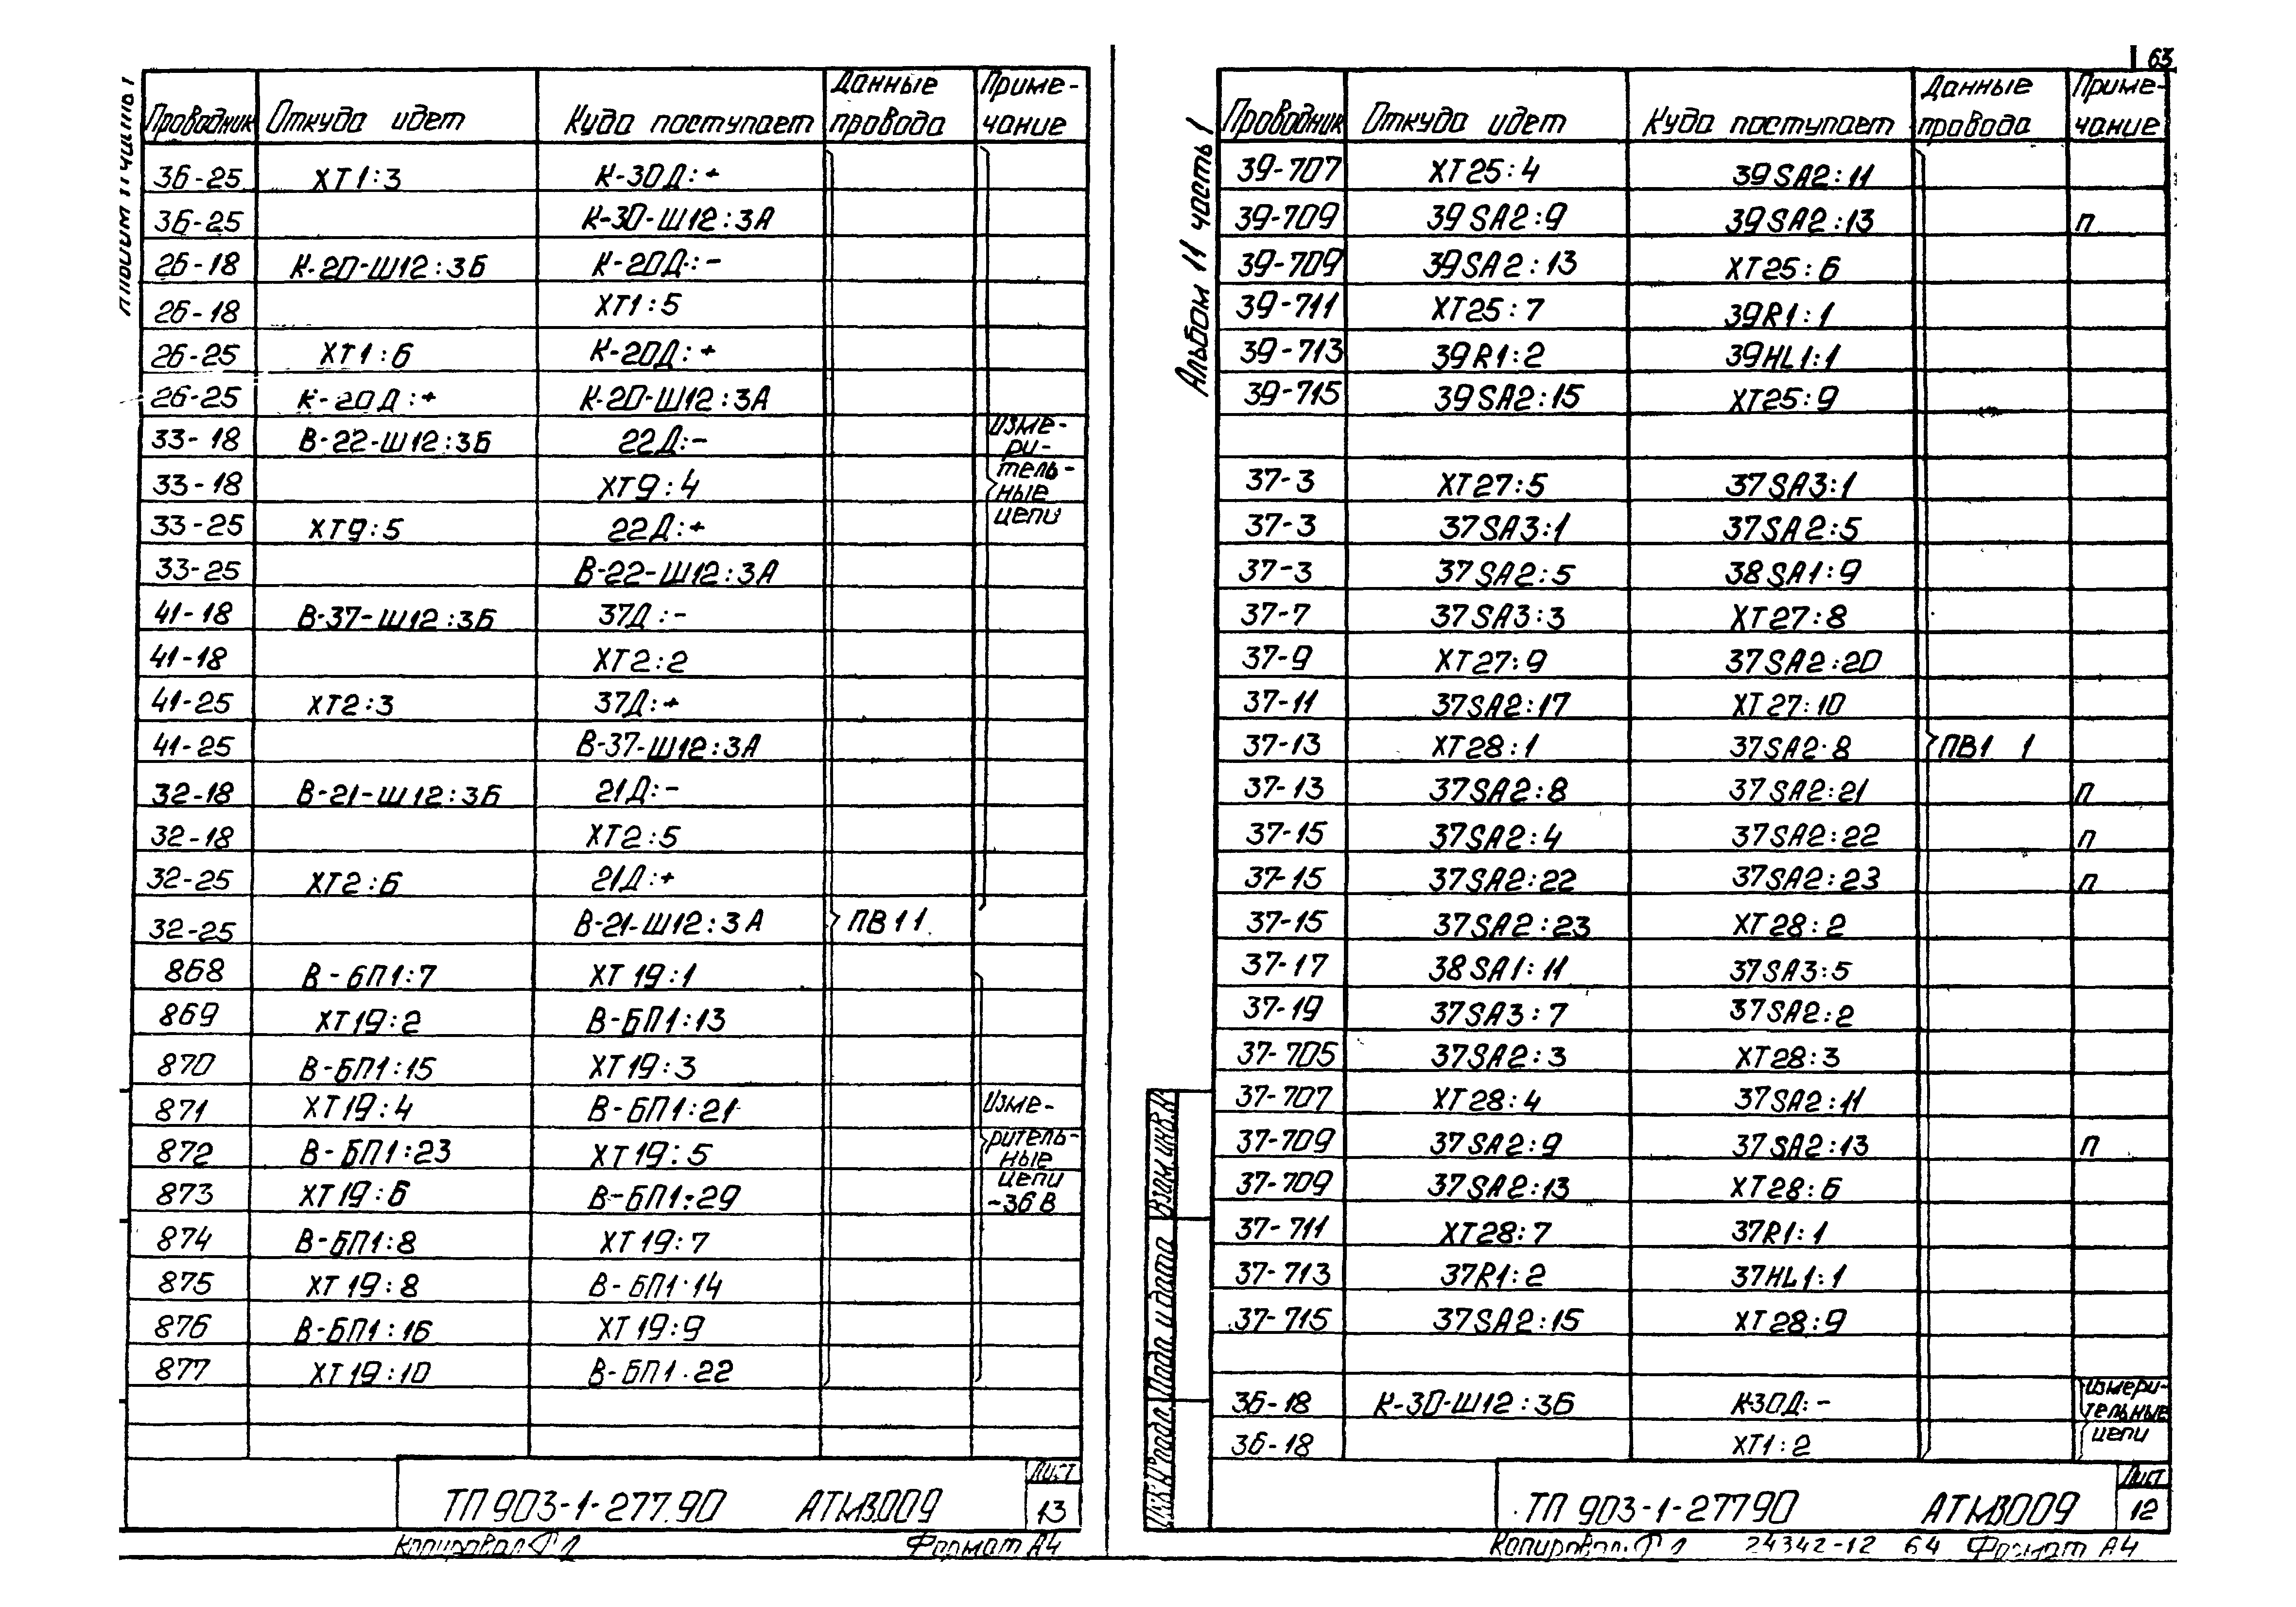 Альбом 11 часть 1
Проводник Откуда идет Куда поступает Данные провода Примечание
36-25 ХТ1:3 К-30Д:+
36-25 К-30-Ш12:3А
26-18 К-20-Ш12:3Б К-20Д:-
26-18 ХТ1:5
26-25 ХТ1:6 К-20Д:+
26-25 К-20Д:+ К-20-Ш12:3А
33-18 В-22-Ш12:3Б 22Д:- Изме-
ри-
33-18 ХТ9:4 тель-
ные
33-25 ХТ9:5 22Д:+ цепи
33-25 В-22-Ш12:3А
41-18 В-37-Ш12:3Б 37Д:-
41-18 ХТ2:2
41-25 ХТ2:3 37Д:+
41-25 В-37-Ш12:3А
32-18 В-21-Ш12:3Б 21Д:-
32-18 ХТ2:5
32-25 ХТ2:6 21Д:+
32-25 В-21-Ш12:3А ПВ1 1
868 В-БП1:7 ХТ19:1
869 ХТ19:2 В-БП1:13
870 В-БП1:15 ХТ19:3
871 ХТ19:4 В-БП1:21 Изме-
872 В-БП1:23 ХТ19:5 ритель-
ные
873 ХТ19:6 В-БП1:29 цепи
~36В
874 В-БП1:8 ХТ19:7
875 ХТ19:8 В-БП1:14
876 В-БП1:16 ХТ19:9
877 ХТ19:10 В-БП1.22
ТП 903-1-277.90 АТМ3.009 Лист 13
Копировал Формат А4
63
Альбом 11 часть 1
Проводник Откуда идет Куда поступает Данные провода Примечание
39-707 ХТ25:4 39SA2:11
39-709 39SA2:9 39SA2:13 п
39-709 39SA2:13 ХТ25:6
39-711 ХТ25:7 39R1:1
39-713 39R1:2 39HL1:1
39-715 39SA2:15 ХТ25:9
37-3 ХТ27:5 37SA3:1
37-3 37SA3:1 37SA2:5
37-3 37SA2:5 38SA1:9
37-7 37SA3:3 ХТ27:8
37-9 ХТ27:9 37SA2:20
37-11 37SA2:17 ХТ27:10
37-13 ХТ28:1 37SA2:8 ПВ1 1
37-13 37SA2:8 37SA2:21 п
37-15 37SA2:4 37SA2:22 п
37-15 37SA2:22 37SA2:23 п
37-15 37SA2:23 ХТ28:2
37-17 38SA1:11 37SA3:5
37-19 37SA3:7 37SA2:2
37-705 37SA2:3 ХТ28:3
37-707 ХТ28:4 37SA2:11
37-709 37SA2:9 37SA2:13 п
37-709 37SA2:13 ХТ28:6
37-711 ХТ28:7 37R1:1
37-713 37R1:2 37HL1:1
37-715 37SA2:15 ХТ28:9
36-18 К-30-Ш12:3Б К-30Д:- Измери-
тельные
36-18 ХТ1:2 цепи
Взам инв. N
Подп и дата
Инв. N подл.
ТП 903-1-277.90 АТМ3.009 Лист 12
Копировал 24342-12 64 Формат А4